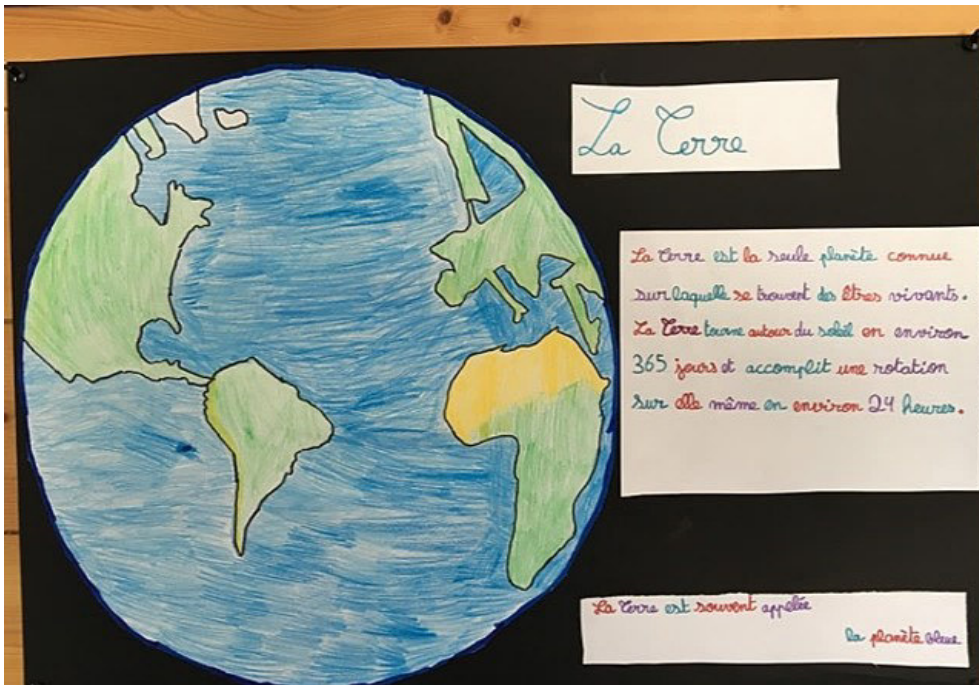 La Terre
La Terre est la seule planète connue
sur laquelle se trouvent des êtres vivants.
La Terre tourne autour du soleil en environ
365 jours et accomplit une rotation
sur elle même en environ 24 heures.
La Terre est souvent appelée
la planète bleue